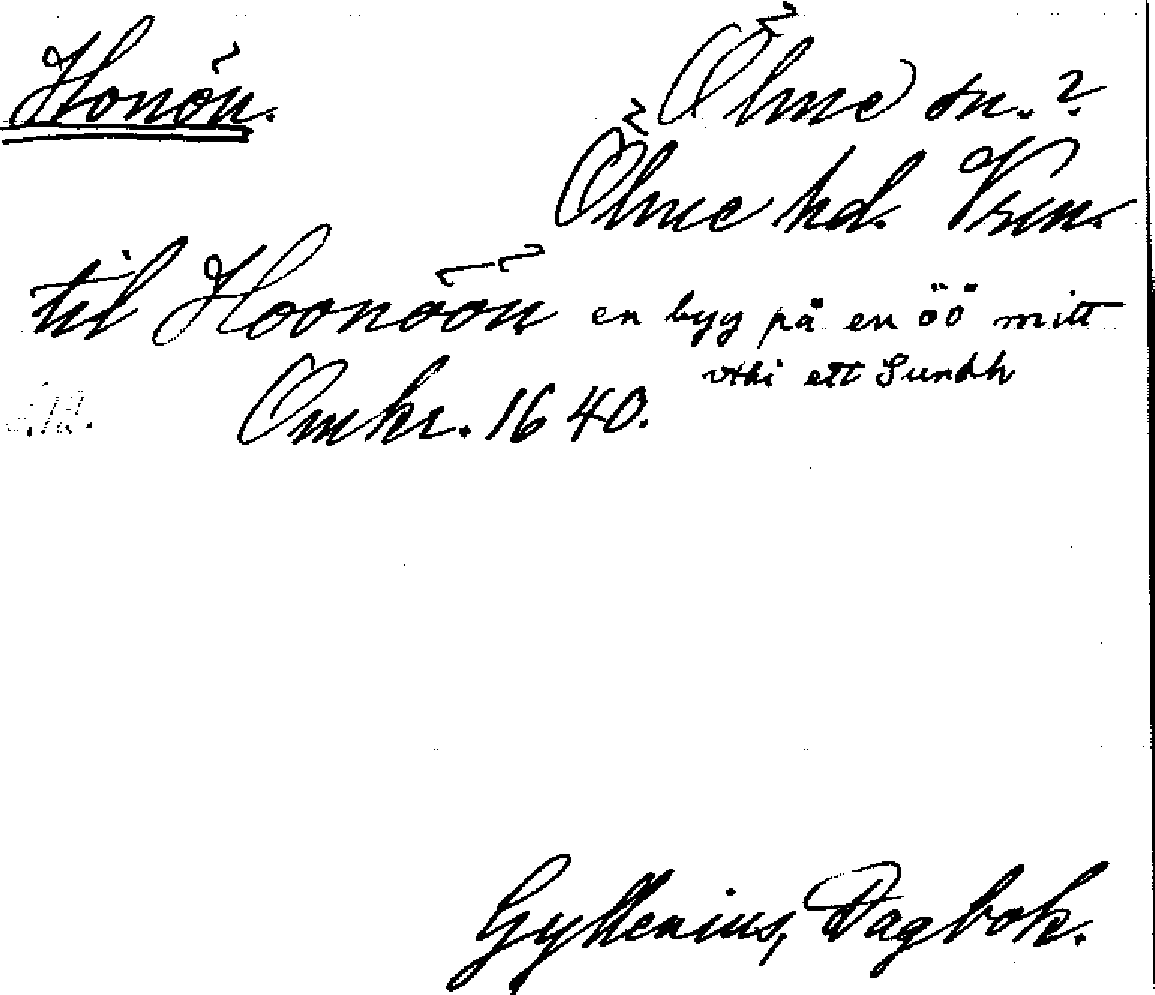 Honön.
Ölme sn.?
Ölme hd. Vrm.
til Hoonöön en byy på en öö mitt
vthi ett Sundh
Omkr. 1640.
Gyllenius, Dagbok.